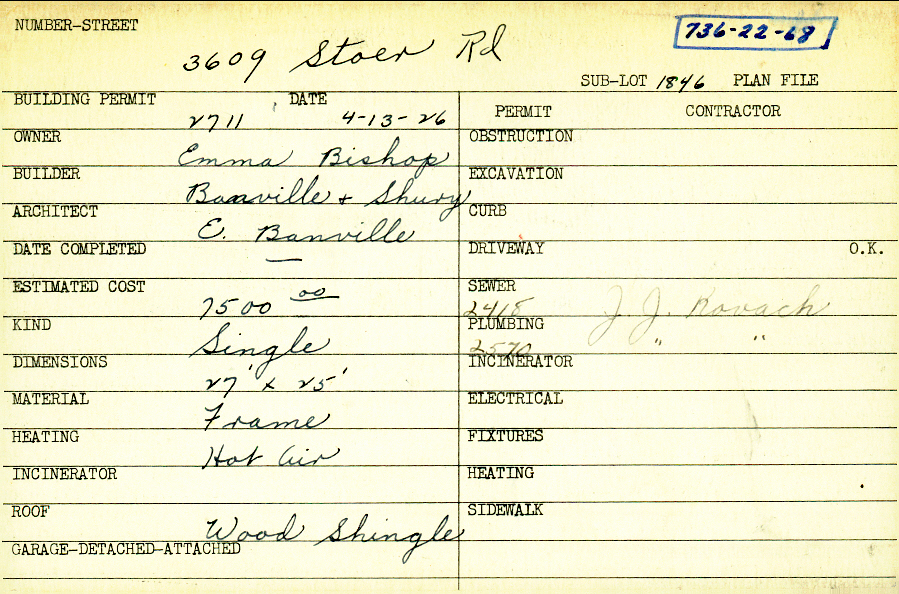 NUMBER-STREET
3609 Stoer Rd
736-22-68
SUB-LOT 1846 PLAN FILE
BUILDING PERMIT 2711 DATE 4-13-26
PERMIT CONTRACTOR
OWNER Emma Bishop
OBSTRUCTION
BUILDER Banville + Shury
EXCAVATION
ARCHITECT E. Banville
CURB
DATE COMPLETED —
DRIVEWAY O.K.
ESTIMATED COST 7500 00
SEWER 2418 J. J. Kovach
KIND Single
PLUMBING 2570 " "
DIMENSIONS 27' x 25'
INCINERATOR
MATERIAL Frame
ELECTRICAL
HEATING Hot Air
FIXTURES
INCINERATOR
HEATING
ROOF Wood Shingle
SIDEWALK
GARAGE-DETACHED-ATTACHED